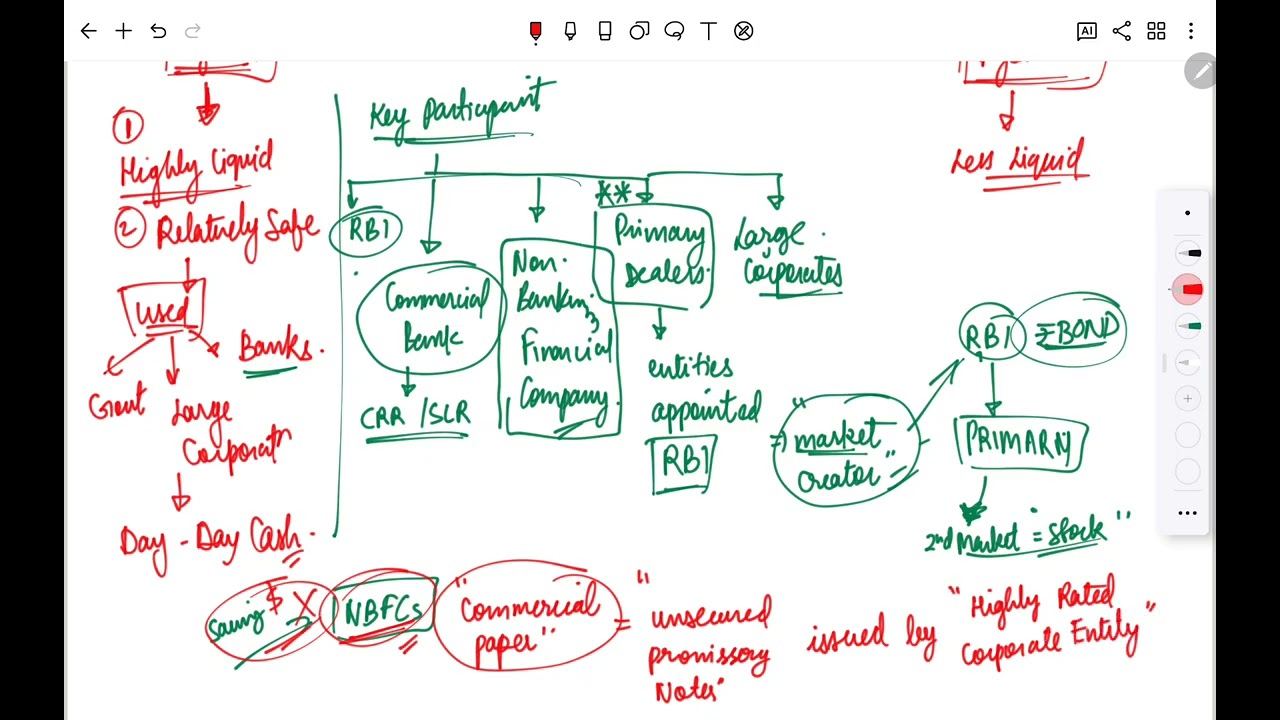 AI
T
Key Participant
①
Highly Liquid
② Relatively Safe
Used
Banks.
Large
Corporat
Day - Day Cash.
RBI
Commercial
Bank
CRR / SLR
Non.
Banking
Financial
Company.
**
Primary
Dealers.
entities
appointed
RBI
Large.
Corporates
=) "market
Creator"
Less Liquid
RBI
BOND
PRIMARY
2nd Market = "Stock"
Saving $ X
NBFCs
"Commercial
paper"
= "unsecured
promissory
Notes"
issued by
"Highly Rated
Corporate Entity"